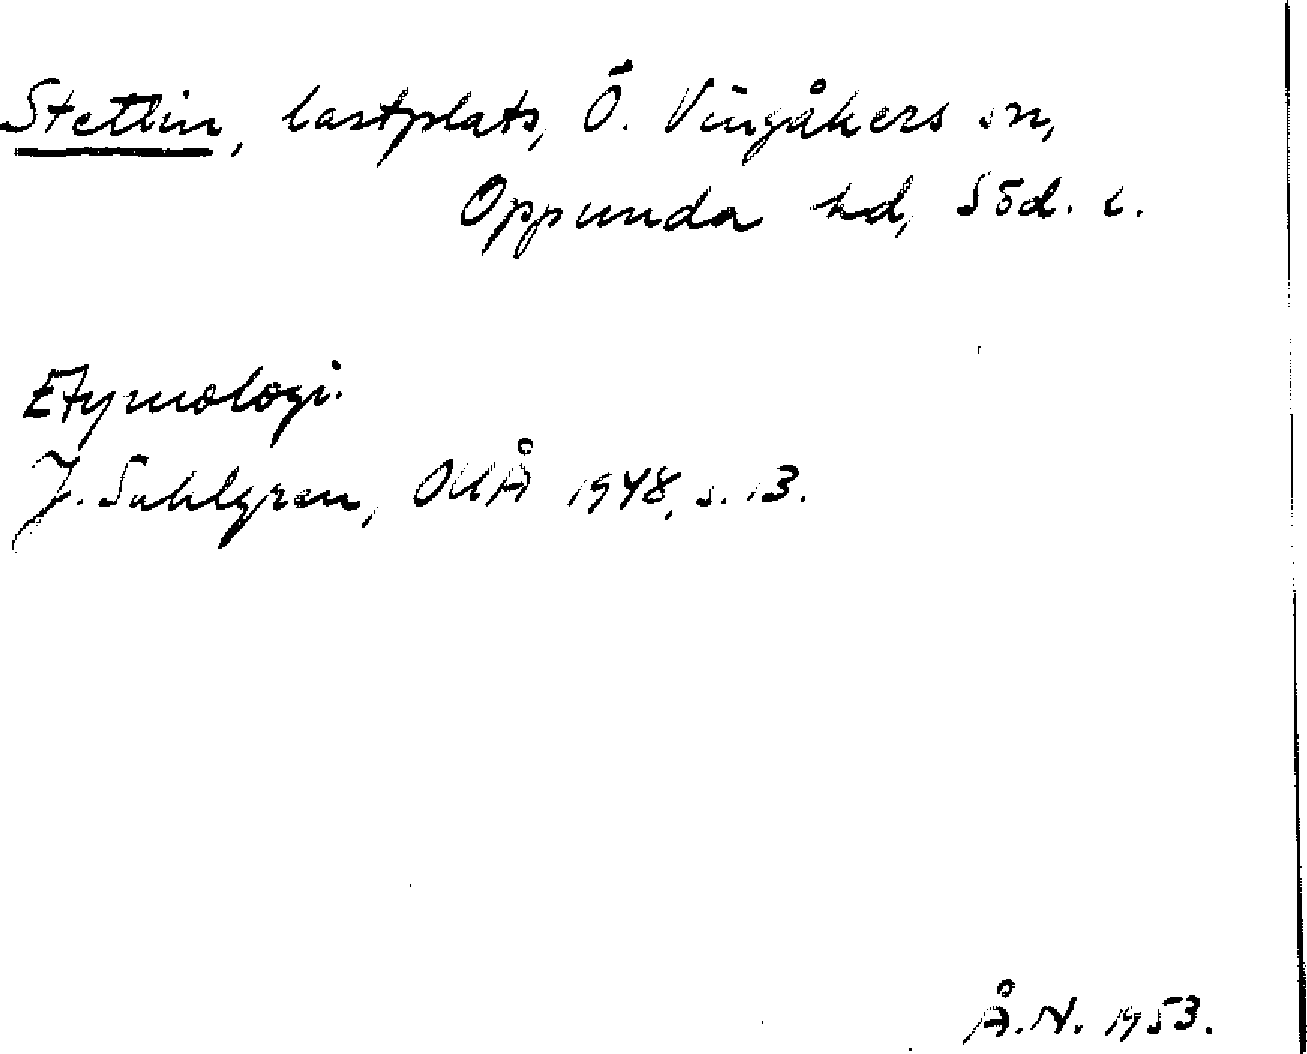 Stettin, lastplats, Ö. Vingåkers sn,
Oppunda hd, Söd. l.
Etymologi.
J. Sahlgren, OUÅ 1948, s. 13.
Å.N. 1953.